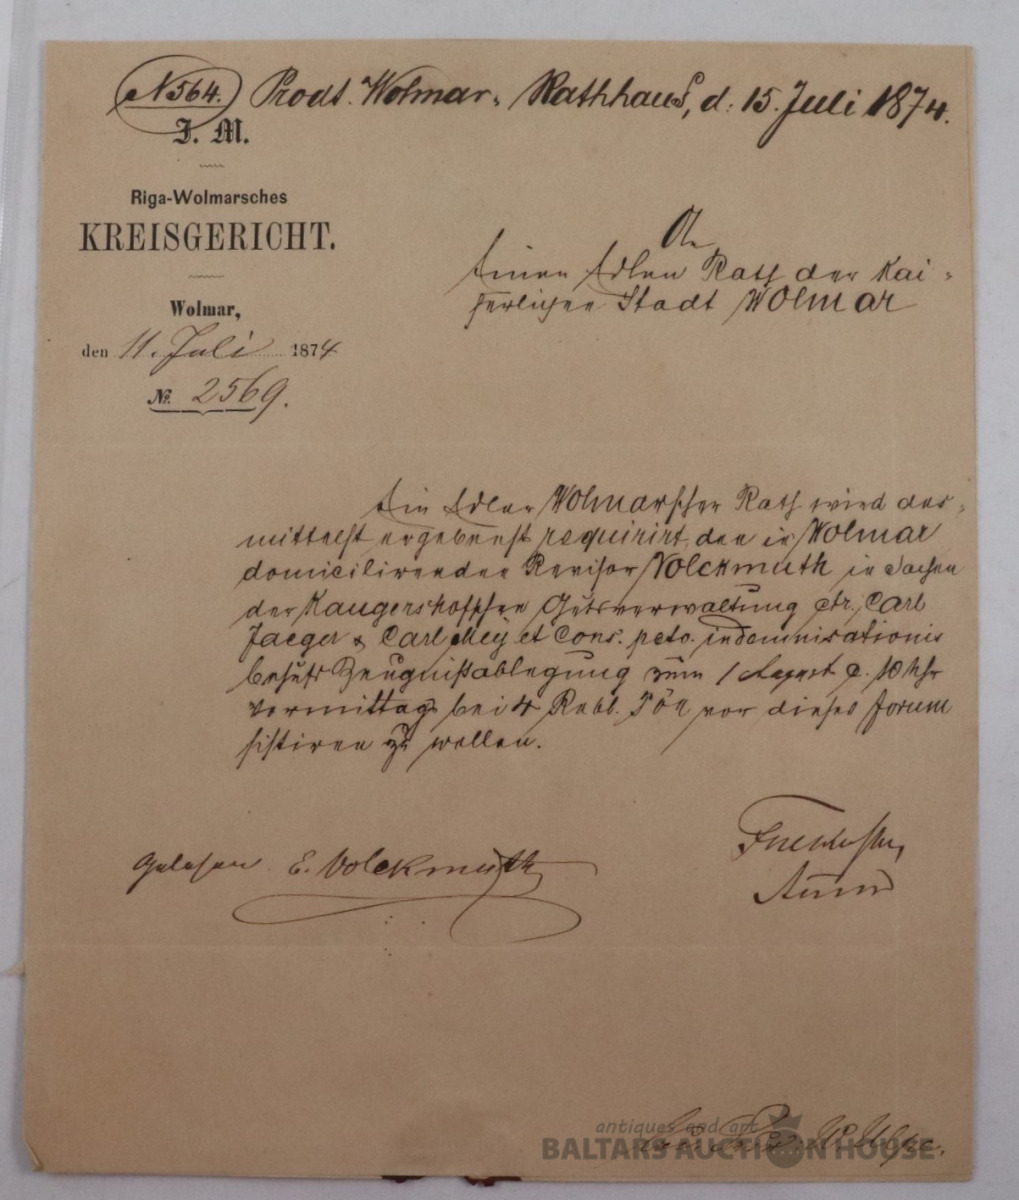 N 564. Prodt. Wolmar, Rathhaus, d. 15. Juli 1874.
J. M.
Riga-Wolmarsches
KREISGERICHT.
Wolmar,
den 11. Juli 1874
№. 2569.
An
Einen Edlen Rath der Kai-
serlichen Stadt Wolmar
Ein Edler Wolmarscher Rath wird des-
mittelst ergebenst requirirt, den in Wolmar
domicilirenden Revisor Volckmuth in Sachen
der Kaugershofschen Gutsverwaltung ctr. Carl
Jaeger & Carl Mey et Cons. pcto. indemnisationis
behufs Zeugnißablegung zum 1 August c. 10 Uhr
Vormittags bei 4 Rubl. Pön vor dieses Forum
sistiren zu wollen.
Gelesen. E. Volckmuth
antiques and art
BALTARS AUCTION HOUSE